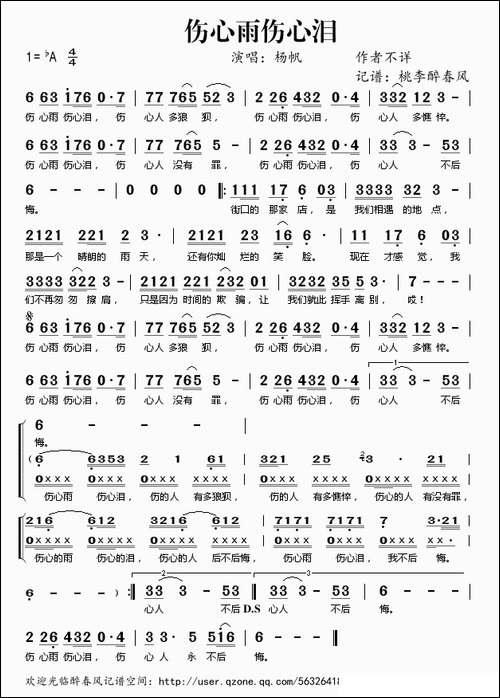 伤心雨伤心泪
1=♭A 4/4 演唱：杨帆 作者不详
记谱：桃李醉春风
6 63 i76 0·7 | 77 765 52 3 | 2 26 432 0·4 | 332 12 3 - |
伤 心雨 伤心泪， 伤 心人 多狼 狈， 伤 心雨 伤心泪， 伤 心人 多憔 悴。
6 63 i76 0·7 | 77 765 5 - | 2 26 432 0·4 | 33 3 - 53 |
伤 心雨 伤心泪， 伤 心人 没有 罪， 伤 心雨 伤心泪， 伤 心人 不后
6 - - - | 0 0 0 0 ‖: 111 17 6 03 | 3333 32 3 - |
悔。 街口的 那家 店，是 我们相遇 的地 点，
2121 221 2 3· | 2121 23 16 6 - | 111 17 6 03 |
那是一个 晴朗的 雨 天， 还有你灿 烂的 笑 脸。 现在 才感 觉，我
3333 322 3 - | 2121 221 232 01 | 3232 35 5 3 | 7 - - - |
们不再匆匆 擦肩， 只是因为 时间的 欺 骗，让 我们就此 挥手 离 别， 哎！
6 63 i76 0·7 | 77 765 52 3 | 2 26 432 0·4 | 332 12 3 - |
伤 心雨 伤心泪， 伤 心人 多狼 狈， 伤 心雨 伤心泪， 伤 心人 多憔 悴。
6 63 i76 0·7 | 77 765 5 - | 2 26 432 0·4 | 33 3 - 53 |
伤 心雨 伤心泪， 伤 心人 没有 罪， 伤 心雨 伤心泪， 伤 心人 不后
6 - - -
悔。
(6 6353 2 1 61 | 321 25 3· 21 |
0xxx 0xxx 0xxx 0xxx | 0xxx 0xxx 0xxx 0xxx |
伤心雨 伤心泪， 伤心的人 有多狼狈， 伤心的人 有多憔悴， 伤心的人 有没有罪，
216 612 3216 612 | 7171 7171 7 3·21 |
0xxx 0xxx 0xxx 0xxx | 0xxx 0xxx 0xxx 0xxx |
伤心的雨 伤心的泪， 伤心的人 后不后悔， 伤心雨 伤心泪， 我不后 悔。
6 - - ): ‖ 33 3 - 53 :‖ 33 3 - 53 | 6 - - - |
心人 不后 D.S 心人 不后 悔。
2 26 432 0·4 | 3 3· 3 - 516 | 6 - - - ‖
伤 心雨 伤心泪， 伤 心 人 永 不后 悔。
欢迎光临醉春风记谱空间：http://user.qzone.qq.com/56326418